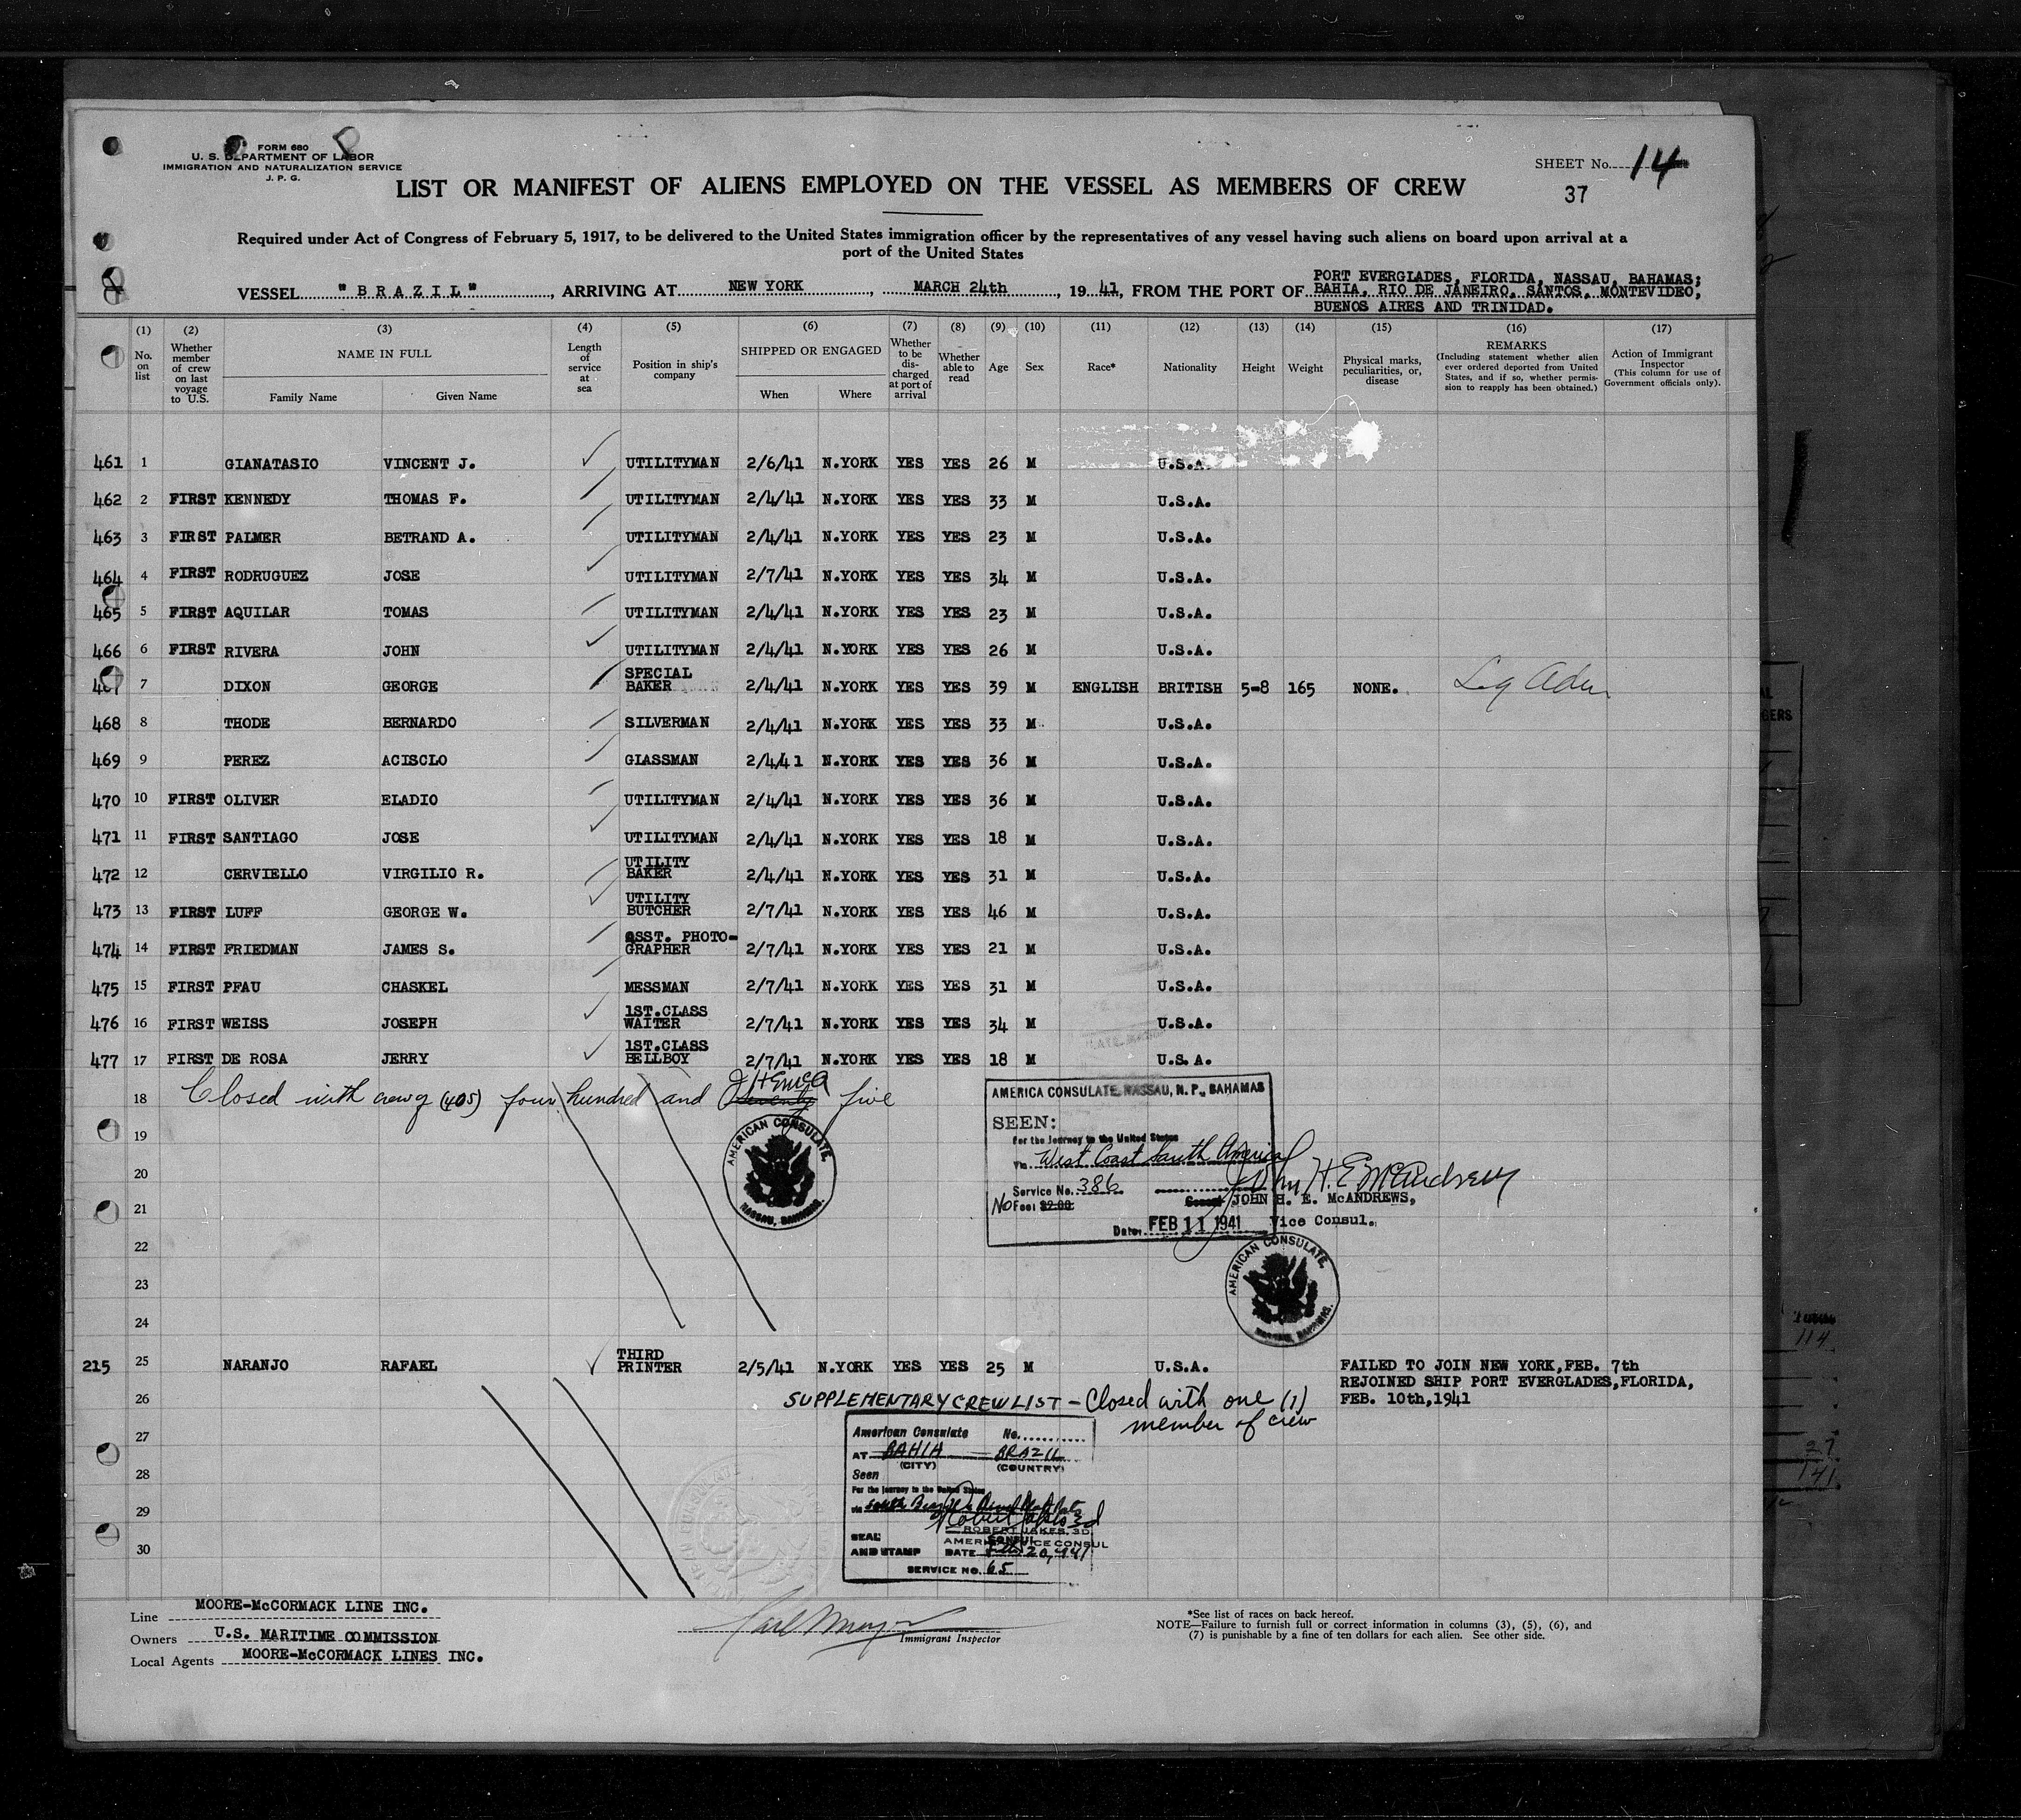 FORM 680
U. S. DEPARTMENT OF LABOR
IMMIGRATION AND NATURALIZATION SERVICE
J. P. G.
SHEET No. 14
37
LIST OR MANIFEST OF ALIENS EMPLOYED ON THE VESSEL AS MEMBERS OF CREW
Required under Act of Congress of February 5, 1917, to be delivered to the United States immigration officer by the representatives of any vessel having such aliens on board upon arrival at a
port of the United States
PORT EVERGLADES, FLORIDA, NASSAU, BAHAMAS;
VESSEL "BRAZIL", ARRIVING AT NEW YORK, MARCH 24th, 1941, FROM THE PORT OF BAHIA, RIO DE JANEIRO, SANTOS, MONTEVIDEO,
BUENOS AIRES AND TRINIDAD.
(1) (2) (3) (4) (5) (6) (7) (8) (9) (10) (11) (12) (13) (14) (15) (16) (17)
No. on list
Whether member of crew on last voyage to U.S.
NAME IN FULL
Family Name
Given Name
Length of service at sea
Position in ship's company
SHIPPED OR ENGAGED
When
Where
Whether to be discharged at port of arrival
Whether able to read
Age
Sex
Race*
Nationality
Height
Weight
Physical marks, peculiarities, or, disease
REMARKS
(Including statement whether alien ever ordered deported from United States, and if so, whether permission to reapply has been obtained.)
Action of Immigrant Inspector
(This column for use of Government officials only).
461 1 GIANATASIO VINCENT J. UTILITYMAN 2/6/41 N.YORK YES YES 26 M U.S.A.
462 2 FIRST KENNEDY THOMAS F. UTILITYMAN 2/4/41 N.YORK YES YES 33 M U.S.A.
463 3 FIRST PALMER BETRAND A. UTILITYMAN 2/4/41 N.YORK YES YES 23 M U.S.A.
464 4 FIRST RODRUGUEZ JOSE UTILITYMAN 2/7/41 N.YORK YES YES 34 M U.S.A.
465 5 FIRST AQUILAR TOMAS UTILITYMAN 2/4/41 N.YORK YES YES 23 M U.S.A.
466 6 FIRST RIVERA JOHN UTILITYMAN 2/4/41 N.YORK YES YES 26 M U.S.A.
467 7 DIXON GEORGE SPECIAL BAKER 2/4/41 N.YORK YES YES 39 M ENGLISH BRITISH 5-8 165 NONE.
468 8 THODE BERNARDO SILVERMAN 2/4/41 N.YORK YES YES 33 M U.S.A.
469 9 PEREZ ACISCLO GLASSMAN 2/441 N.YORK YES YES 36 M U.S.A.
470 10 FIRST OLIVER ELADIO UTILITYMAN 2/4/41 N.YORK YES YES 36 M U.S.A.
471 11 FIRST SANTIAGO JOSE UTILITYMAN 2/4/41 N.YORK YES YES 18 M U.S.A.
472 12 CERVIELLO VIRGILIO R. UTILITY BAKER 2/4/41 N.YORK YES YES 31 M U.S.A.
473 13 FIRST LUFF GEORGE W. UTILITY BUTCHER 2/7/41 N.YORK YES YES 46 M U.S.A.
474 14 FIRST FRIEDMAN JAMES S. ASST. PHOTO-GRAPHER 2/7/41 N.YORK YES YES 21 M U.S.A.
475 15 FIRST PFAU CHASKEL MESSMAN 2/7/41 N.YORK YES YES 31 M U.S.A.
476 16 FIRST WEISS JOSEPH 1ST.CLASS WAITER 2/7/41 N.YORK YES YES 34 M U.S.A.
477 17 FIRST DE ROSA JERRY 1ST.CLASS BELLBOY 2/7/41 N.YORK YES YES 18 M U.S.A.
JHEMcA
18 Closed with crew of (405) four hundred and seventy five
AMERICAN CONSULATE, NASSAU, BAHAMAS.
AMERICA CONSULATE, NASSAU, N. P., BAHAMAS
SEEN:
For the journey to the United States
Via West Coast South America
John H. E. McAndrews
Service No. 386
No Fee $2.00
Consul JOHN H. E. McANDREWS,
Date: FEB 11 1941 Vice Consul.
AMERICAN CONSULATE, NASSAU, BAHAMAS.
19
20
21
22
23
24
215 25 NARANJO RAFAEL THIRD PRINTER 2/5/41 N.YORK YES YES 25 M U.S.A. FAILED TO JOIN NEW YORK,FEB. 7th
REJOINED SHIP PORT EVERGLADES,FLORIDA,
FEB. 10th,1941
26
SUPPLEMENTARY CREW LIST - Closed with one (1)
member of crew
27
28
29
30
American Consulate No.
AT BAHIA BRAZIL
(CITY) (COUNTRY)
Seen
For the journey to the United States
via South Brazil
ROBERT JAKES, 3D
CONSUL
AMERICAN VICE CONSUL
SEAL
AND STAMP DATE Feb 20, 1941
SERVICE NO. 65
Line MOORE-McCORMACK LINE INC.
Owners U.S. MARITIME COMMISSION
Local Agents MOORE-McCORMACK LINES INC.
Immigrant Inspector
*See list of races on back hereof.
NOTE—Failure to furnish full or correct information in columns (3), (5), (6), and
(7) is punishable by a fine of ten dollars for each alien. See other side.
114
27
141